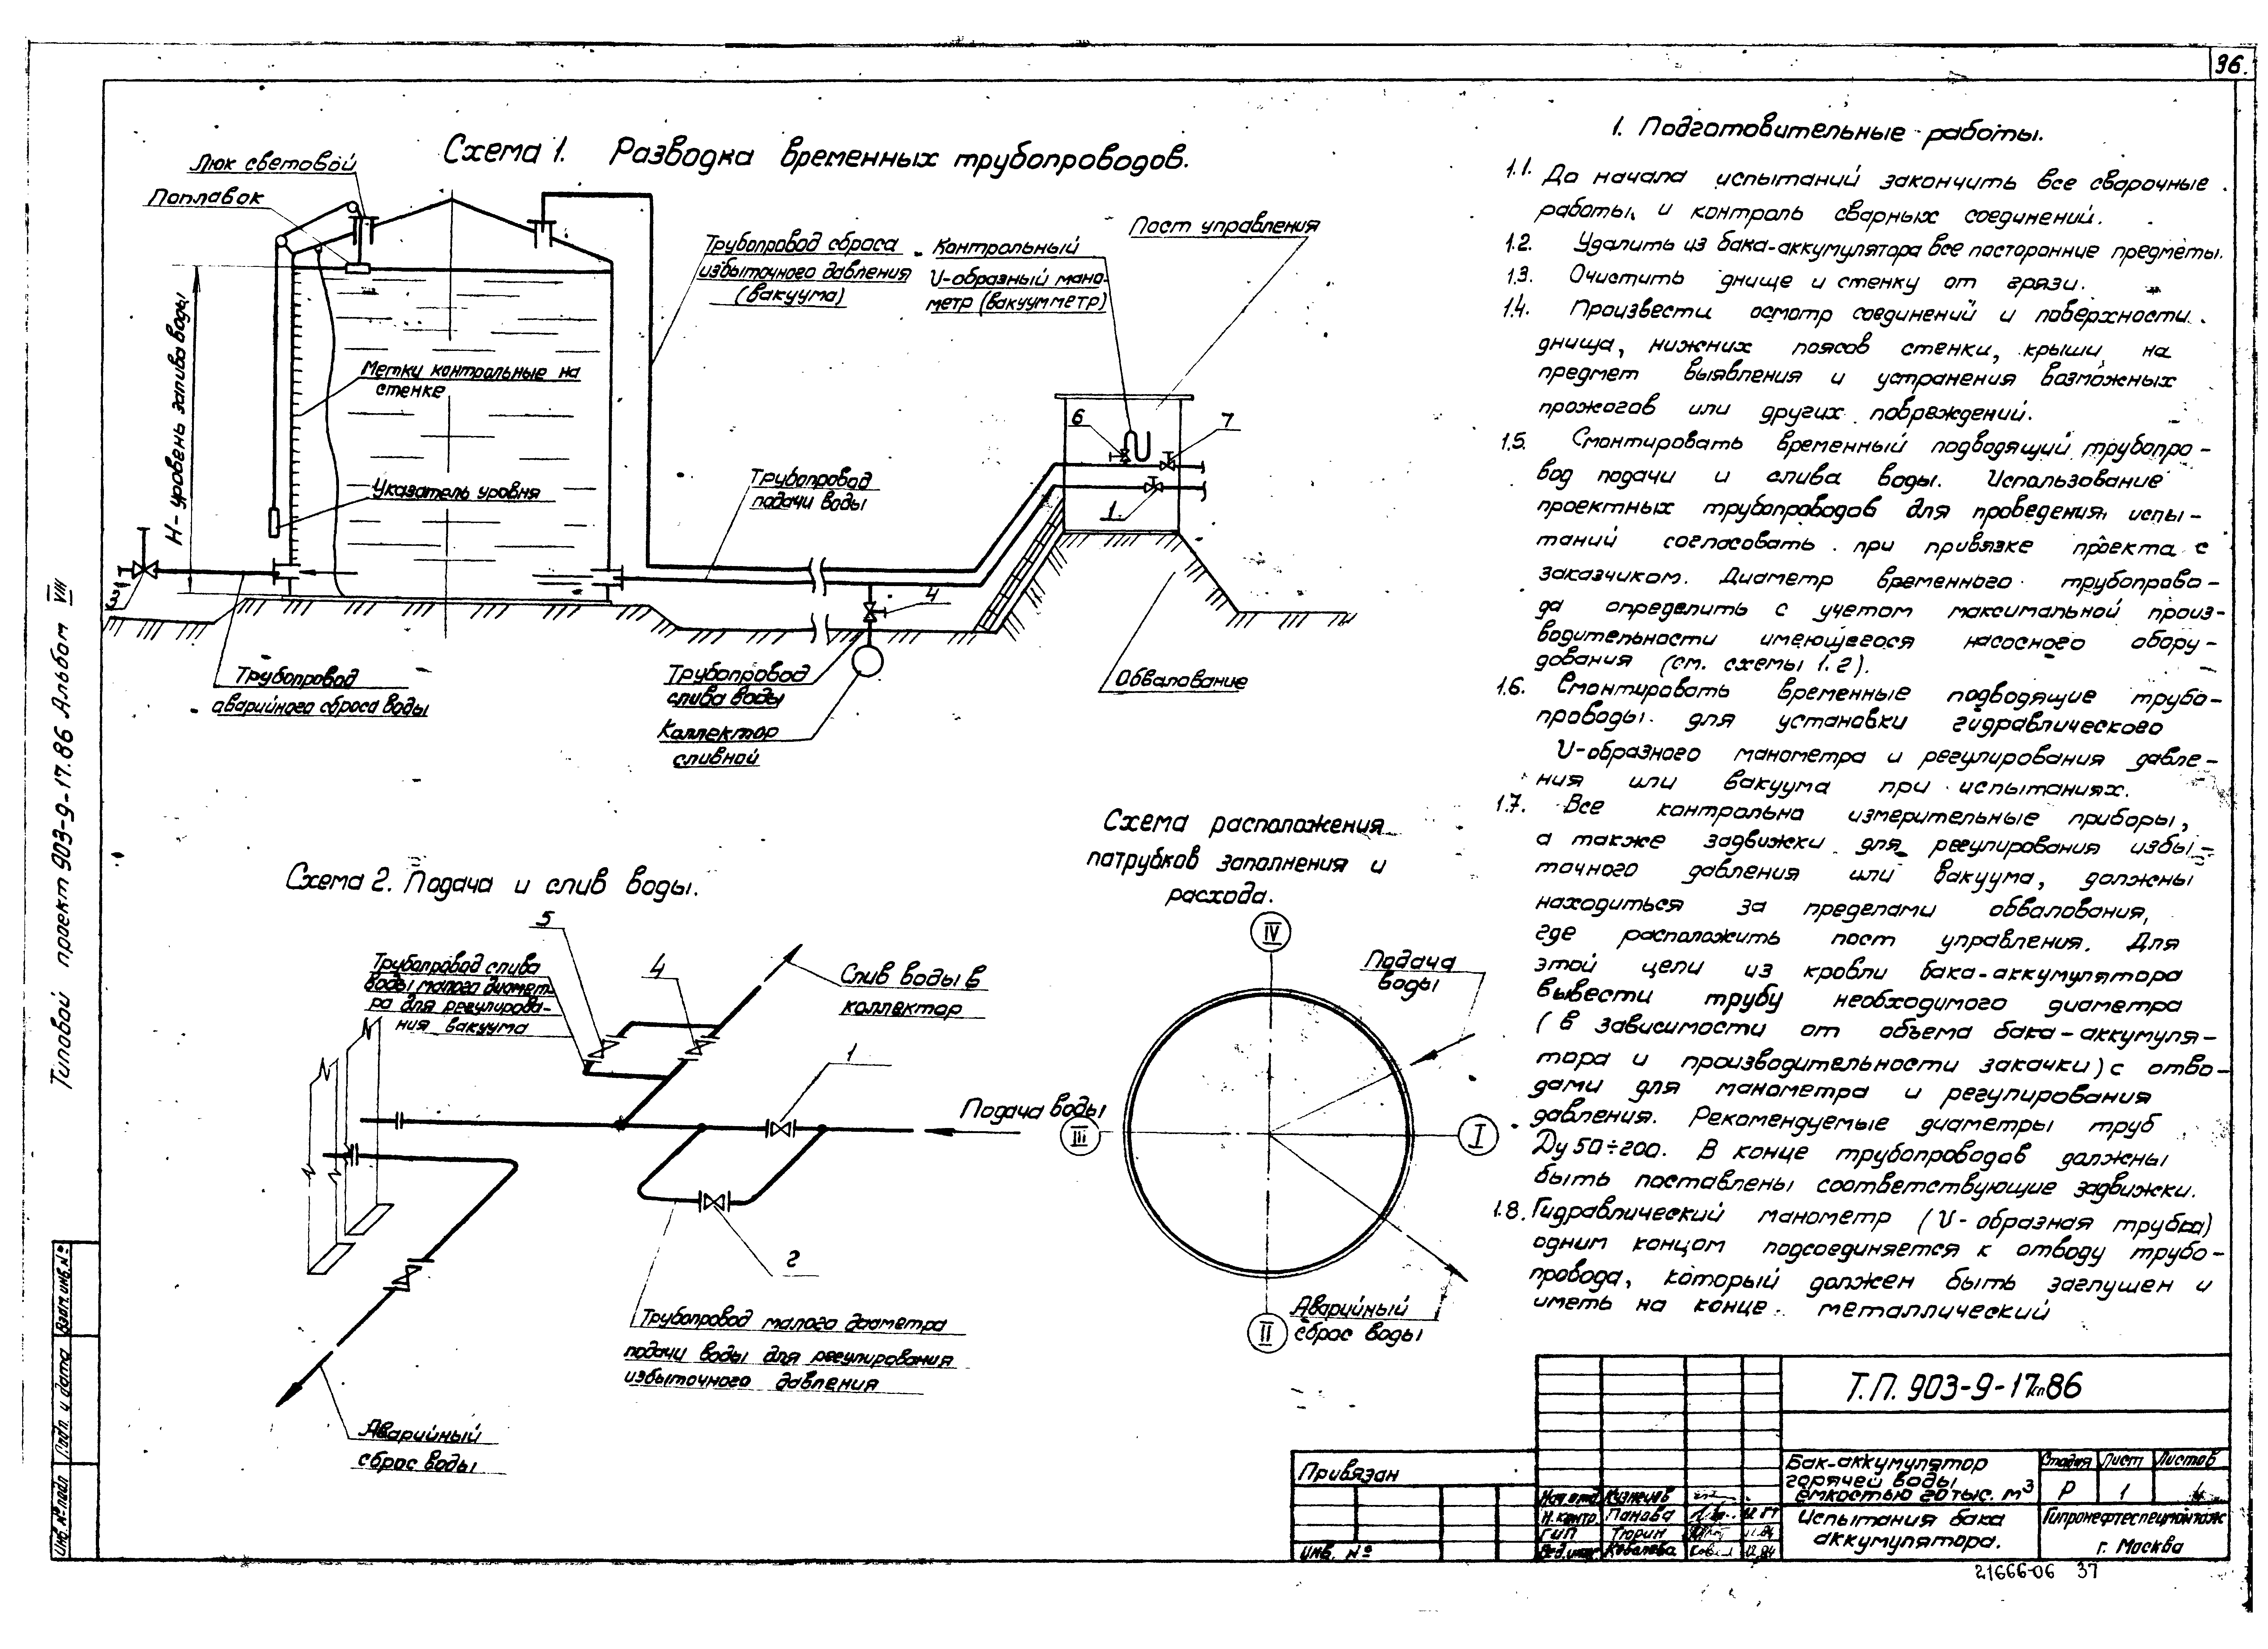 36.
Схема 1. Разводка временных трубопроводов.
Люк световой
Поплавок
Н-уровень залива воды
Метки контрольные на
стенке
Указатель уровня
Трубопровод
аварийного сброса воды
Трубопровод сброса
избыточного давления
(вакуума)
Контрольный
U-образный мано-
метр (вакуумметр)
Пост управления
6
7
1
Трубопровод
подачи воды
4
Трубопровод
слива воды
Коллектор
сливной
Обвалование
Схема 2. Подача и слив воды.
5
4
Трубопровод слива
воды малого диамет-
ра для регулирова-
ния вакуума
Слив воды в
коллектор
1
Подача воды
2
Трубопровод малого диаметра
подачи воды для регулирования
избыточного давления
Аварийный
сброс воды
Схема расположения
патрубков заполнения и
расхода.
IV
Подача
воды
III
I
II
Аварийный
сброс воды
1. Подготовительные работы.
1.1. До начала испытаний закончить все сварочные
работы и контроль сварных соединений.
1.2. Удалить из бака-аккумулятора все посторонние предметы.
1.3. Очистить днище и стенку от грязи.
1.4. Произвести осмотр соединений и поверхности
днища, нижних поясов стенки, крыши на
предмет выявления и устранения возможных
прожогов или других повреждений.
1.5. Смонтировать временный подводящий трубопро-
вод подачи и слива воды. Использование
проектных трубопроводов для проведения испы-
таний согласовать при привязке проекта с
заказчиком. Диаметр временного трубопрово-
да определить с учетом максимальной произ-
водительности имеющегося насосного обору-
дования (см. схемы 1.2).
1.6. Смонтировать временные подводящие трубо-
проводы для установки гидравлического
U-образного манометра и регулирования давле-
ния или вакуума при испытаниях.
1.7. Все контрольно измерительные приборы,
а также задвижки для регулирования избы-
точного давления или вакуума, должны
находиться за пределами обвалования,
где расположить пост управления. Для
этой цели из кровли бака-аккумулятора
вывести трубу необходимого диаметра
(в зависимости от объема бака-аккумуля-
тора и производительности закачки) с отво-
дами для манометра и регулирования
давления. Рекомендуемые диаметры труб
Ду 50÷200. В конце трубопроводов должны
быть поставлены соответствующие задвижки.
1.8. Гидравлический манометр (U-образная трубка)
одним концом подсоединяется к отводу трубо-
провода, который должен быть заглушен и
иметь на конце металлический
Т.П. 903-9-17сп86
Бак-аккумулятор
горячей воды
емкостью 20 тыс. м³
Стадия Лист Листов
Р 1 4
Испытания бака
аккумулятора.
Гипронефтеспецмонтаж
г. Москва
Нач. отд. Кузнецов
Н. контр. Панова
ГИП Тюрин
Вед. инж. Ковалева 12.84
Привязан
Инв. №
21666-06 37
Типовой проект 903-9-17.86 Альбом VIII
Взам. инв. №
Подп. и дата
Инв. № подл